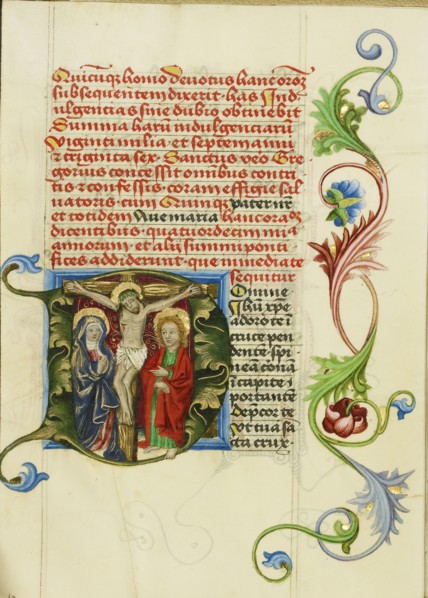 Quicūqȝ homo devotus hanc oroȝ
subsequentem dixerit has Ind-
ulgencias sine dubio obtinebit
Summa harū indulgenciarū
Viginti milia et septem anni
et triginta sex. Sanctus vero Gre
gorius concessit omnibus contri
tis et confessis coram effigie sal
uatoris cum Quinqȝ pater nr̄
et totidem Aue maria hanc oraȝ
dicentibus quatuordecim mi͡a
annorum et alij summi ponti
fices addiderunt que inmediate
sequitur
Domine
ihū xp̄e
adoro te ī
cruce pen
dentē spi
neā coronā
in capite
portantē
dep̄cor te
vt tua sā
cta crux